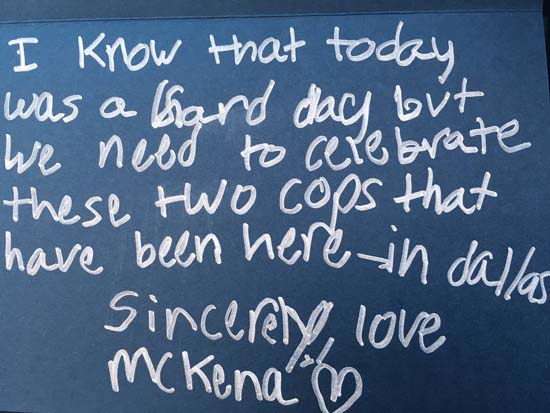 I know that today
was a hard day but
we need to celebrate
these two cops that
have been here in dallas
Sincerely, love
McKena